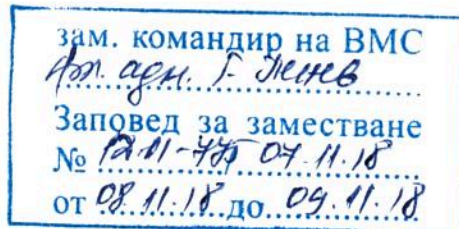 зам. командир на ВМС
фл. адм. Г. Пенев
Заповед за заместване
№ 12.11-775 07.11.18
от 08.11.18 до 09.11.18